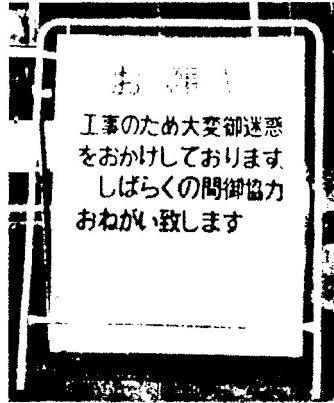 お願い
工事のため大変御迷惑
をおかけしております
しばらくの間御協力
おねがい致します